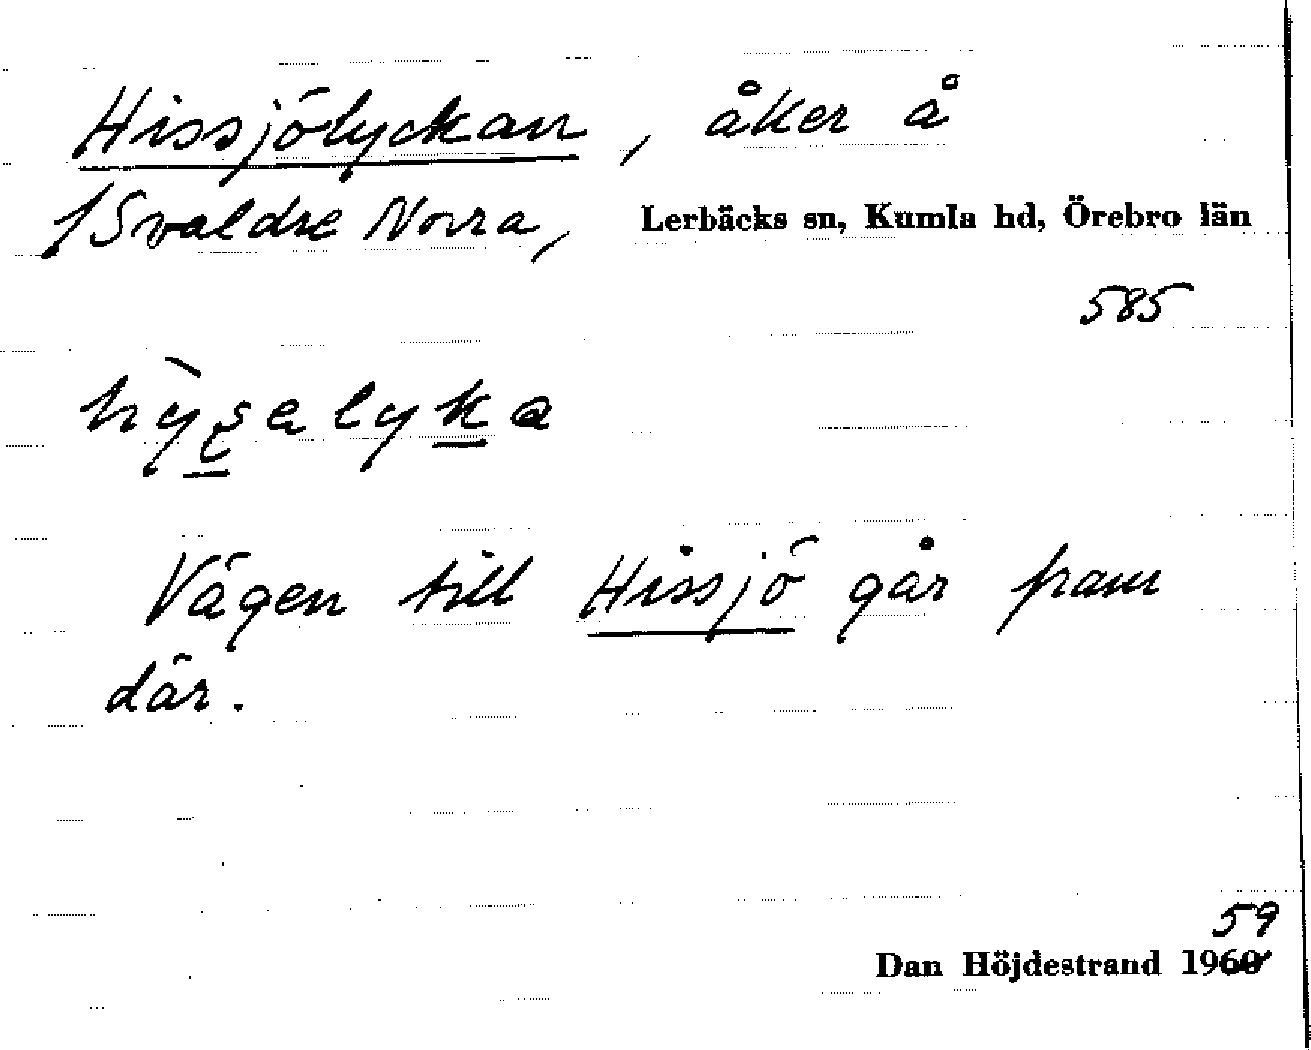 Hissjölyckan, åker å
1/ Svaldre Norra, Lerbäcks sn, Kumla hd, Örebro län
585
Vägen till Hissjö går fram
där.
59
Dan Höjdestrand 1960